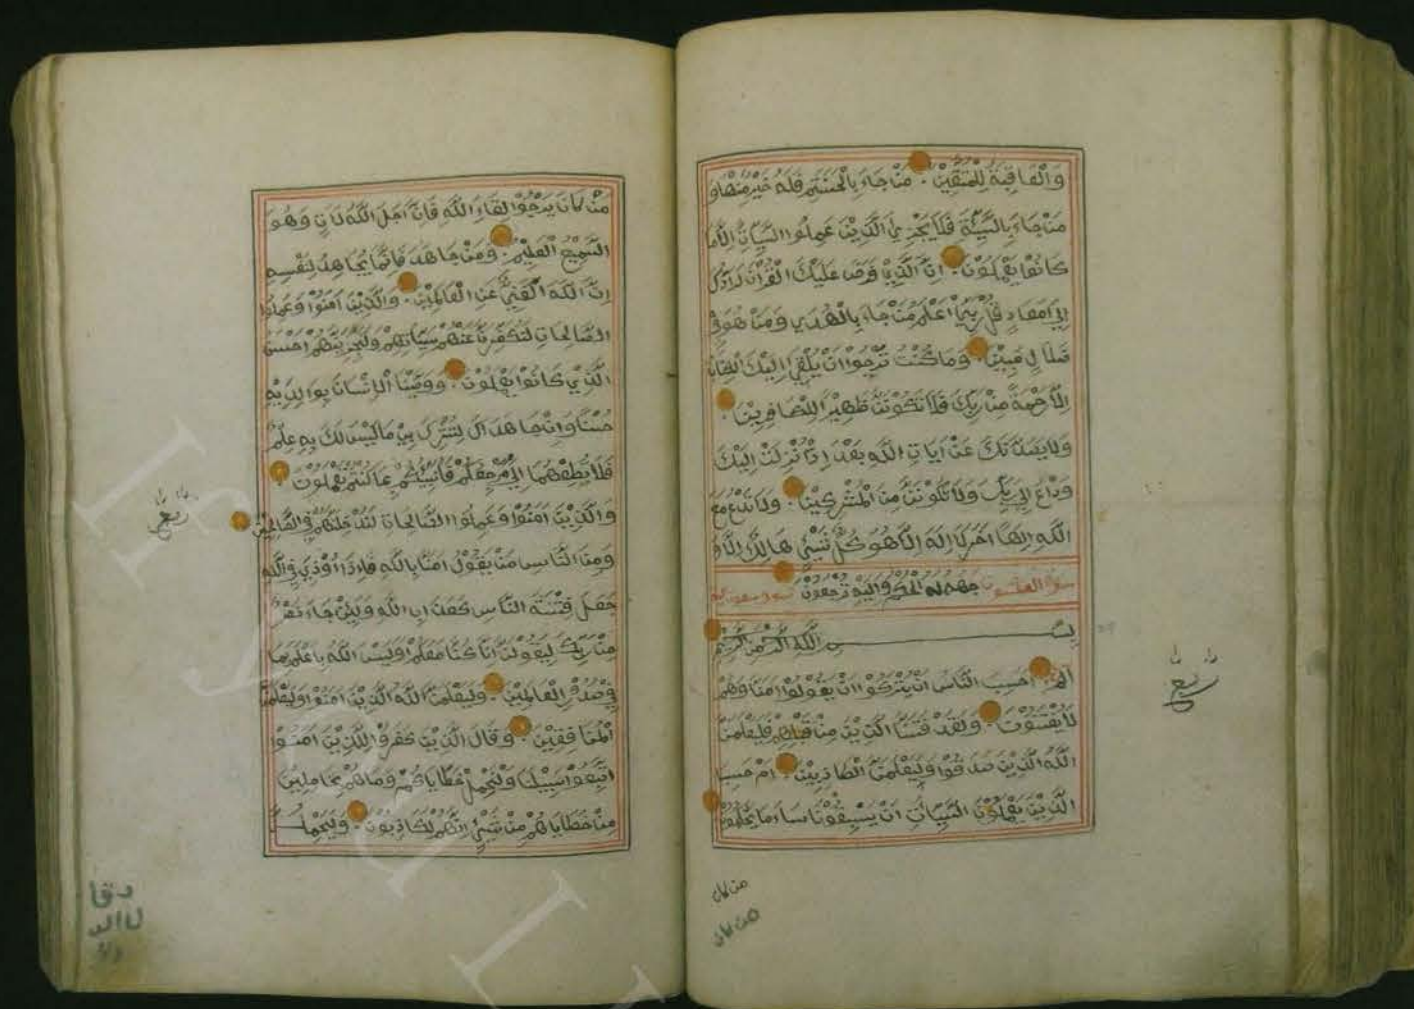 وَالْعَاقِبَةُ لِلْمُتَّقِيْنَ مَنْ جَاءَ بِالْحَسَنَةِ فَلَهُ خَيْرٌ مِنْهَا وَ
مَنْ جَاءَ بِالسَّيِّئَةِ فَلَا يُجْزَي الَّذِيْنَ عَمِلُوا السَّيِّاٰتِ اِلَّا مَا
كَانُوْا يَعْمَلُوْنَ اِنَّ الَّذِيْ فَرَضَ عَلَيْكَ الْقُرْآنَ لَرَادُّكَ
اِلٰي مَعَادٍ قُلْ رَبِّيْ اَعْلَمُ مَنْ جَاءَ بِالْهُدَي وَمَنْ هُوَ فِيْ
ضَلَالٍ مُبِيْنٍ وَمَا كُنْتَ تَرْجُوْا اَنْ يُلْقٰي اِلَيْكَ الْكِتَابُ
اِلَّا رَحْمَةً مِنْ رَبِّكَ فَلَا تَكُوْنَنَّ ظَهِيْرًا لِلْكَافِرِيْنَ
وَلَا يَصُدُّنَّكَ عَنْ اٰيَاتِ اللّٰهِ بَعْدَ اِذْ اُنْزِلَتْ اِلَيْكَ
وَادْعُ اِلٰي رَبِّكَ وَلَا تَكُوْنَنَّ مِنَ الْمُشْرِكِيْنَ وَلَا تَدْعُ مَعَ
اللّٰهِ اِلٰهًا اٰخَرَ لَا اِلٰهَ اِلَّا هُوَ كُلُّ شَيْئٍ هَالِكٌ اِلَّا وَ
سورة العنكبوت جْهَهُ لَهُ الْحُكْمُ وَاِلَيْهِ تُرْجَعُوْنَ
بِسْمِ اللّٰهِ الرَّحْمٰنِ الرَّحِيْمِ
الٓمّٓ اَحَسِبَ النَّاسُ اَنْ يُتْرَكُوْا اَنْ يَقُوْلُوْا اٰمَنَّا وَهُمْ
لَا يُفْتَنُوْنَ وَلَقَدْ فَتَنَّا الَّذِيْنَ مِنْ قَبْلِهِمْ فَلَيَعْلَمَنَّ
اللّٰهُ الَّذِيْنَ صَدَقُوْا وَلَيَعْلَمَنَّ الْكَاذِبِيْنَ اَمْ حَسِبَ
الَّذِيْنَ يَعْمَلُوْنَ السَّيِّاٰتِ اَنْ يَسْبِقُوْنَا سَاءَ مَا يَحْكُمُوْنَ
من كان
من كان
ربع
مَنْ كَانَ يَرْجُوْا لِقَاءَ اللّٰهِ فَاِنَّ اَجَلَ اللّٰهِ لَاٰتٍ وَهُوَ
السَّمِيْعُ الْعَلِيْمُ وَمَنْ جَاهَدَ فَاِنَّمَا يُجَاهِدُ لِنَفْسِهِ
اِنَّ اللّٰهَ لَغَنِيٌّ عَنِ الْعَالَمِيْنَ وَالَّذِيْنَ اٰمَنُوْا وَعَمِلُوا
الصَّالِحَاتِ لَنُكَفِّرَنَّ عَنْهُمْ سَيِّاٰتِهِمْ وَلَنَجْزِيَنَّهُمْ اَحْسَنَ
الَّذِيْ كَانُوْا يَعْمَلُوْنَ وَوَصَّيْنَا الْاِنْسَانَ بِوَالِدَيْهِ
حُسْنًا وَاِنْ جَاهَدَاكَ لِتُشْرِكَ بِيْ مَا لَيْسَ لَكَ بِهِ عِلْمٌ
فَلَا تُطِعْهُمَا اِلَيَّ مَرْجِعُكُمْ فَاُنَبِّئُكُمْ بِمَا كُنْتُمْ تَعْمَلُوْنَ
وَالَّذِيْنَ اٰمَنُوْا وَعَمِلُوا الصَّالِحَاتِ لَنُدْخِلَنَّهُمْ فِي الصَّالِحِيْنَ
وَمِنَ النَّاسِ مَنْ يَقُوْلُ اٰمَنَّا بِاللّٰهِ فَاِذَا اُوْذِيَ فِي اللّٰهِ
جَعَلَ فِتْنَةَ النَّاسِ كَعَذَابِ اللّٰهِ وَلَئِنْ جَاءَ نَصْرٌ
مِنْ رَبِّكَ لَيَقُوْلُنَّ اِنَّا كُنَّا مَعَكُمْ اَوَلَيْسَ اللّٰهُ بِاَعْلَمَ بِمَا
فِيْ صُدُوْرِ الْعَالَمِيْنَ وَلَيَعْلَمَنَّ اللّٰهُ الَّذِيْنَ اٰمَنُوْا وَلَيَعْلَمَنَّ
الْمُنَافِقِيْنَ وَقَالَ الَّذِيْنَ كَفَرُوْا لِلَّذِيْنَ اٰمَنُوْا
اتَّبِعُوْا سَبِيْلَنَا وَلْنَحْمِلْ خَطَايَاكُمْ وَمَا هُمْ بِحَامِلِيْنَ
مِنْ خَطَايَاهُمْ مِنْ شَيْئٍ اِنَّهُمْ لَكَاذِبُوْنَ وَلَيَحْمِلُنَّ
ربع